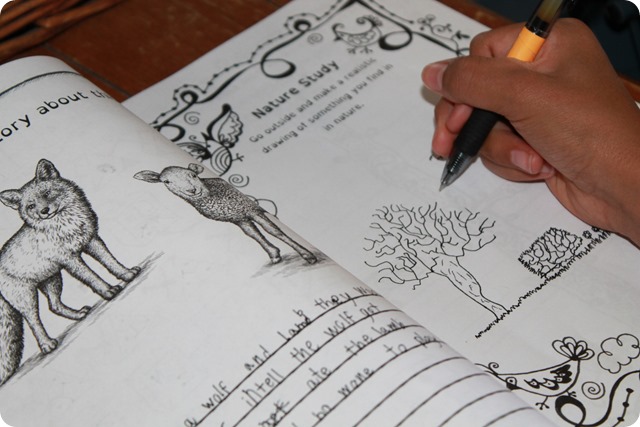 tory about th
Nature Study
Go outside and make a realistic
drawing of something you find in
in nature.
a wolf and lamb they
tell the wolf
ate the lamb
to